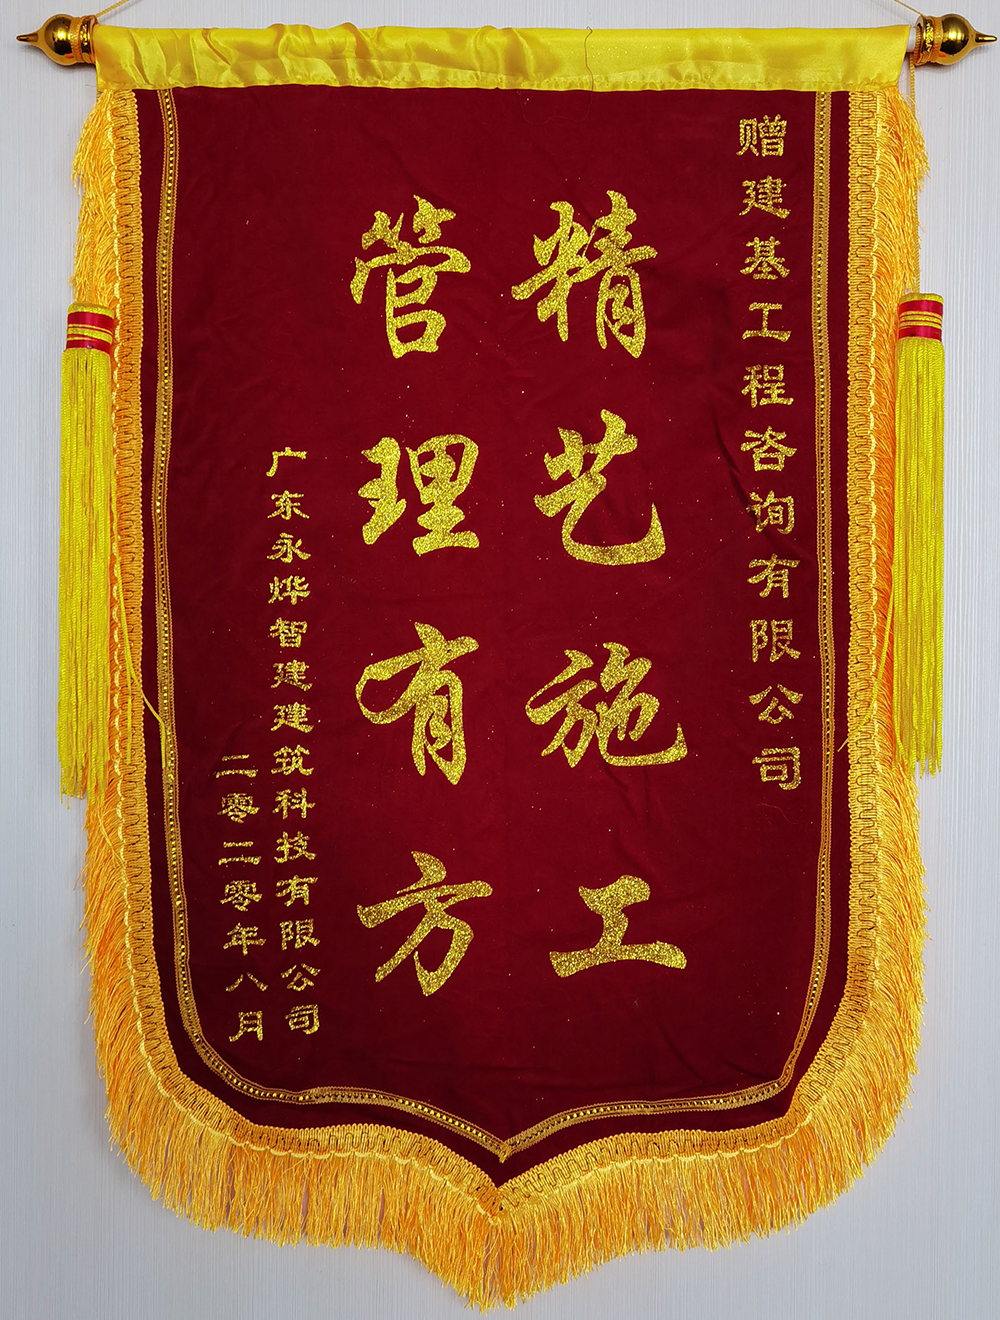 赠建基工程咨询有限公司
精艺施工
管理有方
广东永烨智建建筑科技有限公司
二零二零年八月